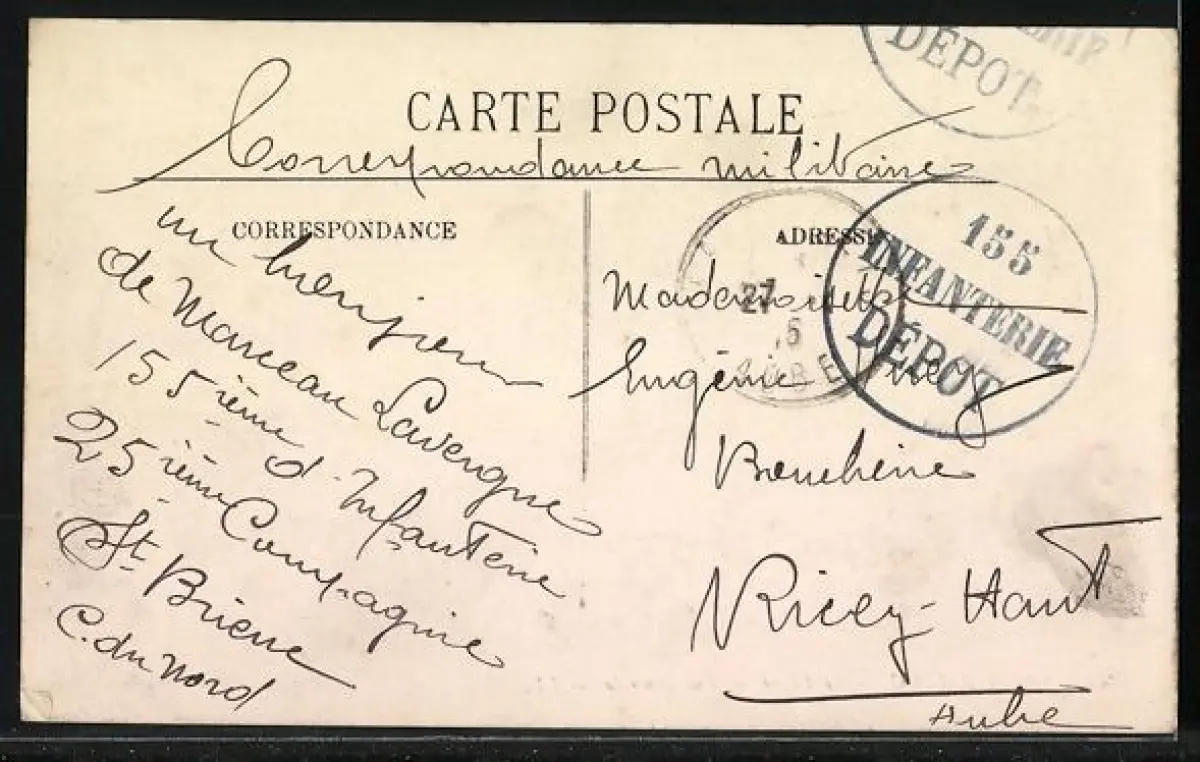 DÉPOT
CARTE POSTALE
Correspondance militaire
CORRESPONDANCE
un bonjour
de Marceau Lavergne
155 ième d. Infanterie
25 ième Compagnie
St. Brieuc
C. du Nord
ADRESSE
155
INFANTERIE
DÉPOT
27
5
AUBE
Mademoiselle
Eugénie
Ricey-Haut
Aube